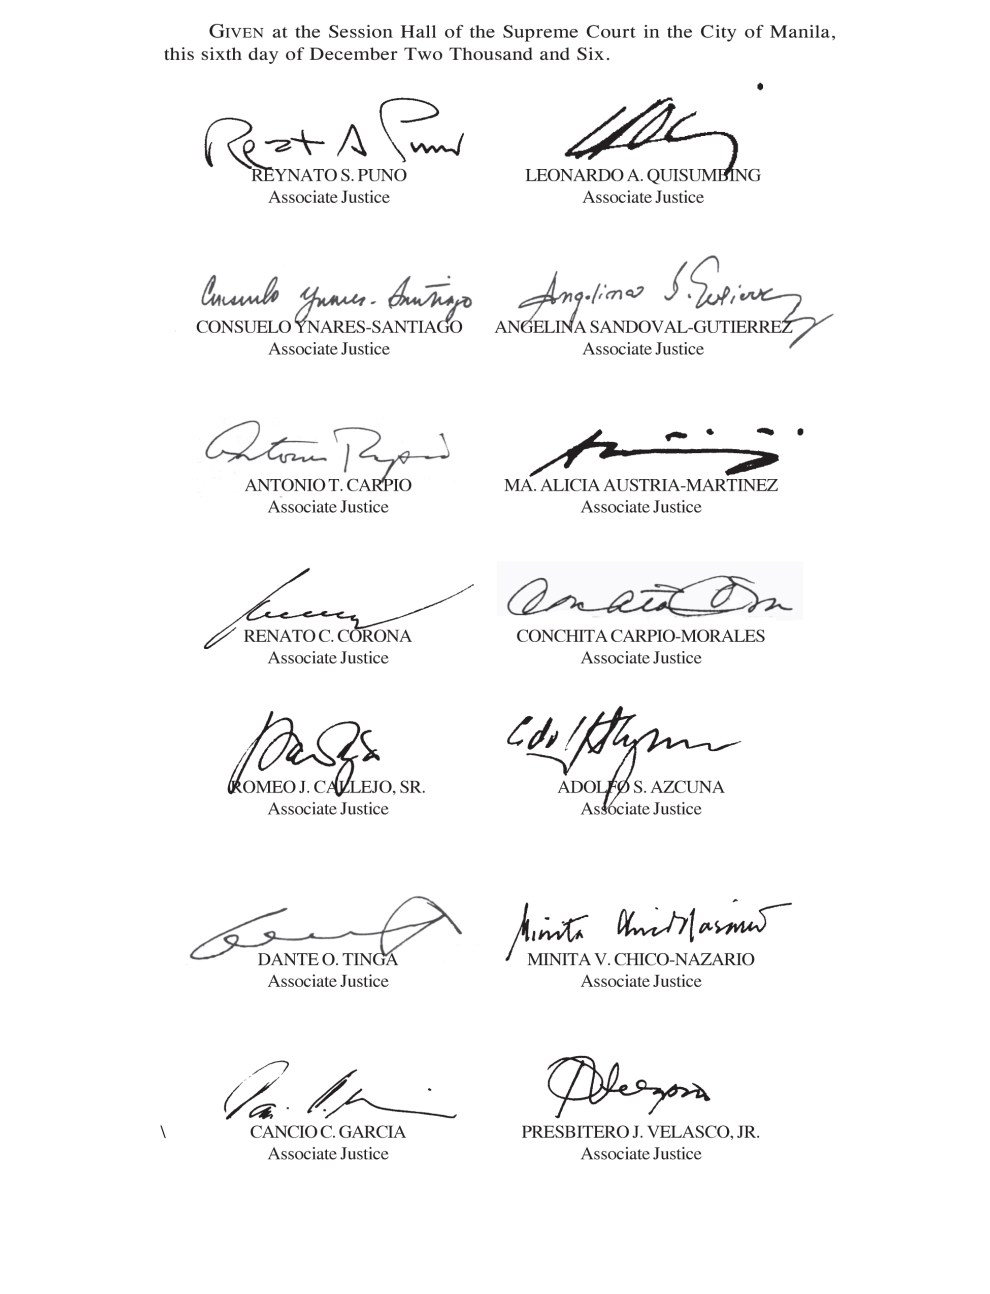 GIVEN at the Session Hall of the Supreme Court in the City of Manila,
this sixth day of December Two Thousand and Six.
REYNATO S. PUNO LEONARDO A. QUISUMBING
Associate Justice Associate Justice
CONSUELO YNARES-SANTIAGO ANGELINA SANDOVAL-GUTIERREZ
Associate Justice Associate Justice
ANTONIO T. CARPIO MA. ALICIA AUSTRIA-MARTINEZ
Associate Justice Associate Justice
RENATO C. CORONA CONCHITA CARPIO-MORALES
Associate Justice Associate Justice
ROMEO J. CALLEJO, SR. ADOLFO S. AZCUNA
Associate Justice Associate Justice
DANTE O. TINGA MINITA V. CHICO-NAZARIO
Associate Justice Associate Justice
\ CANCIO C. GARCIA PRESBITERO J. VELASCO, JR.
Associate Justice Associate Justice